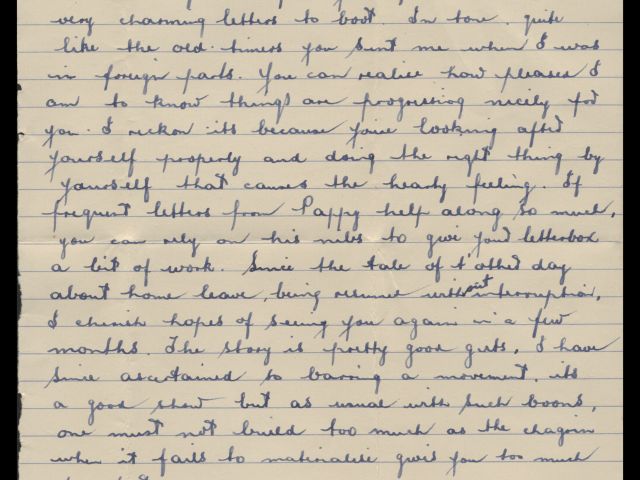 very charming letters to boot. In tone, quite
like the old-timers you sent me when I was
in foreign parts. You can realise how pleased I
am to know things are progressing nicely for
you. I reckon its because you're looking after
yourself properly and doing the right thing by
yourself that causes the hearty feeling. If
frequent letters from Pappy help along so much,
you can rely on his nibs to give your letterbox
a bit of work. Since the tale of t'other day
about home leave, being resumed without interruption,
I cherish hopes of seeing you again in a few
months. The story is pretty good guts, I have
since ascertained so barring a movement, its
a good show but as usual with such boons,
one must not build too much as the chagrin
when it fails to materialise gives you too much